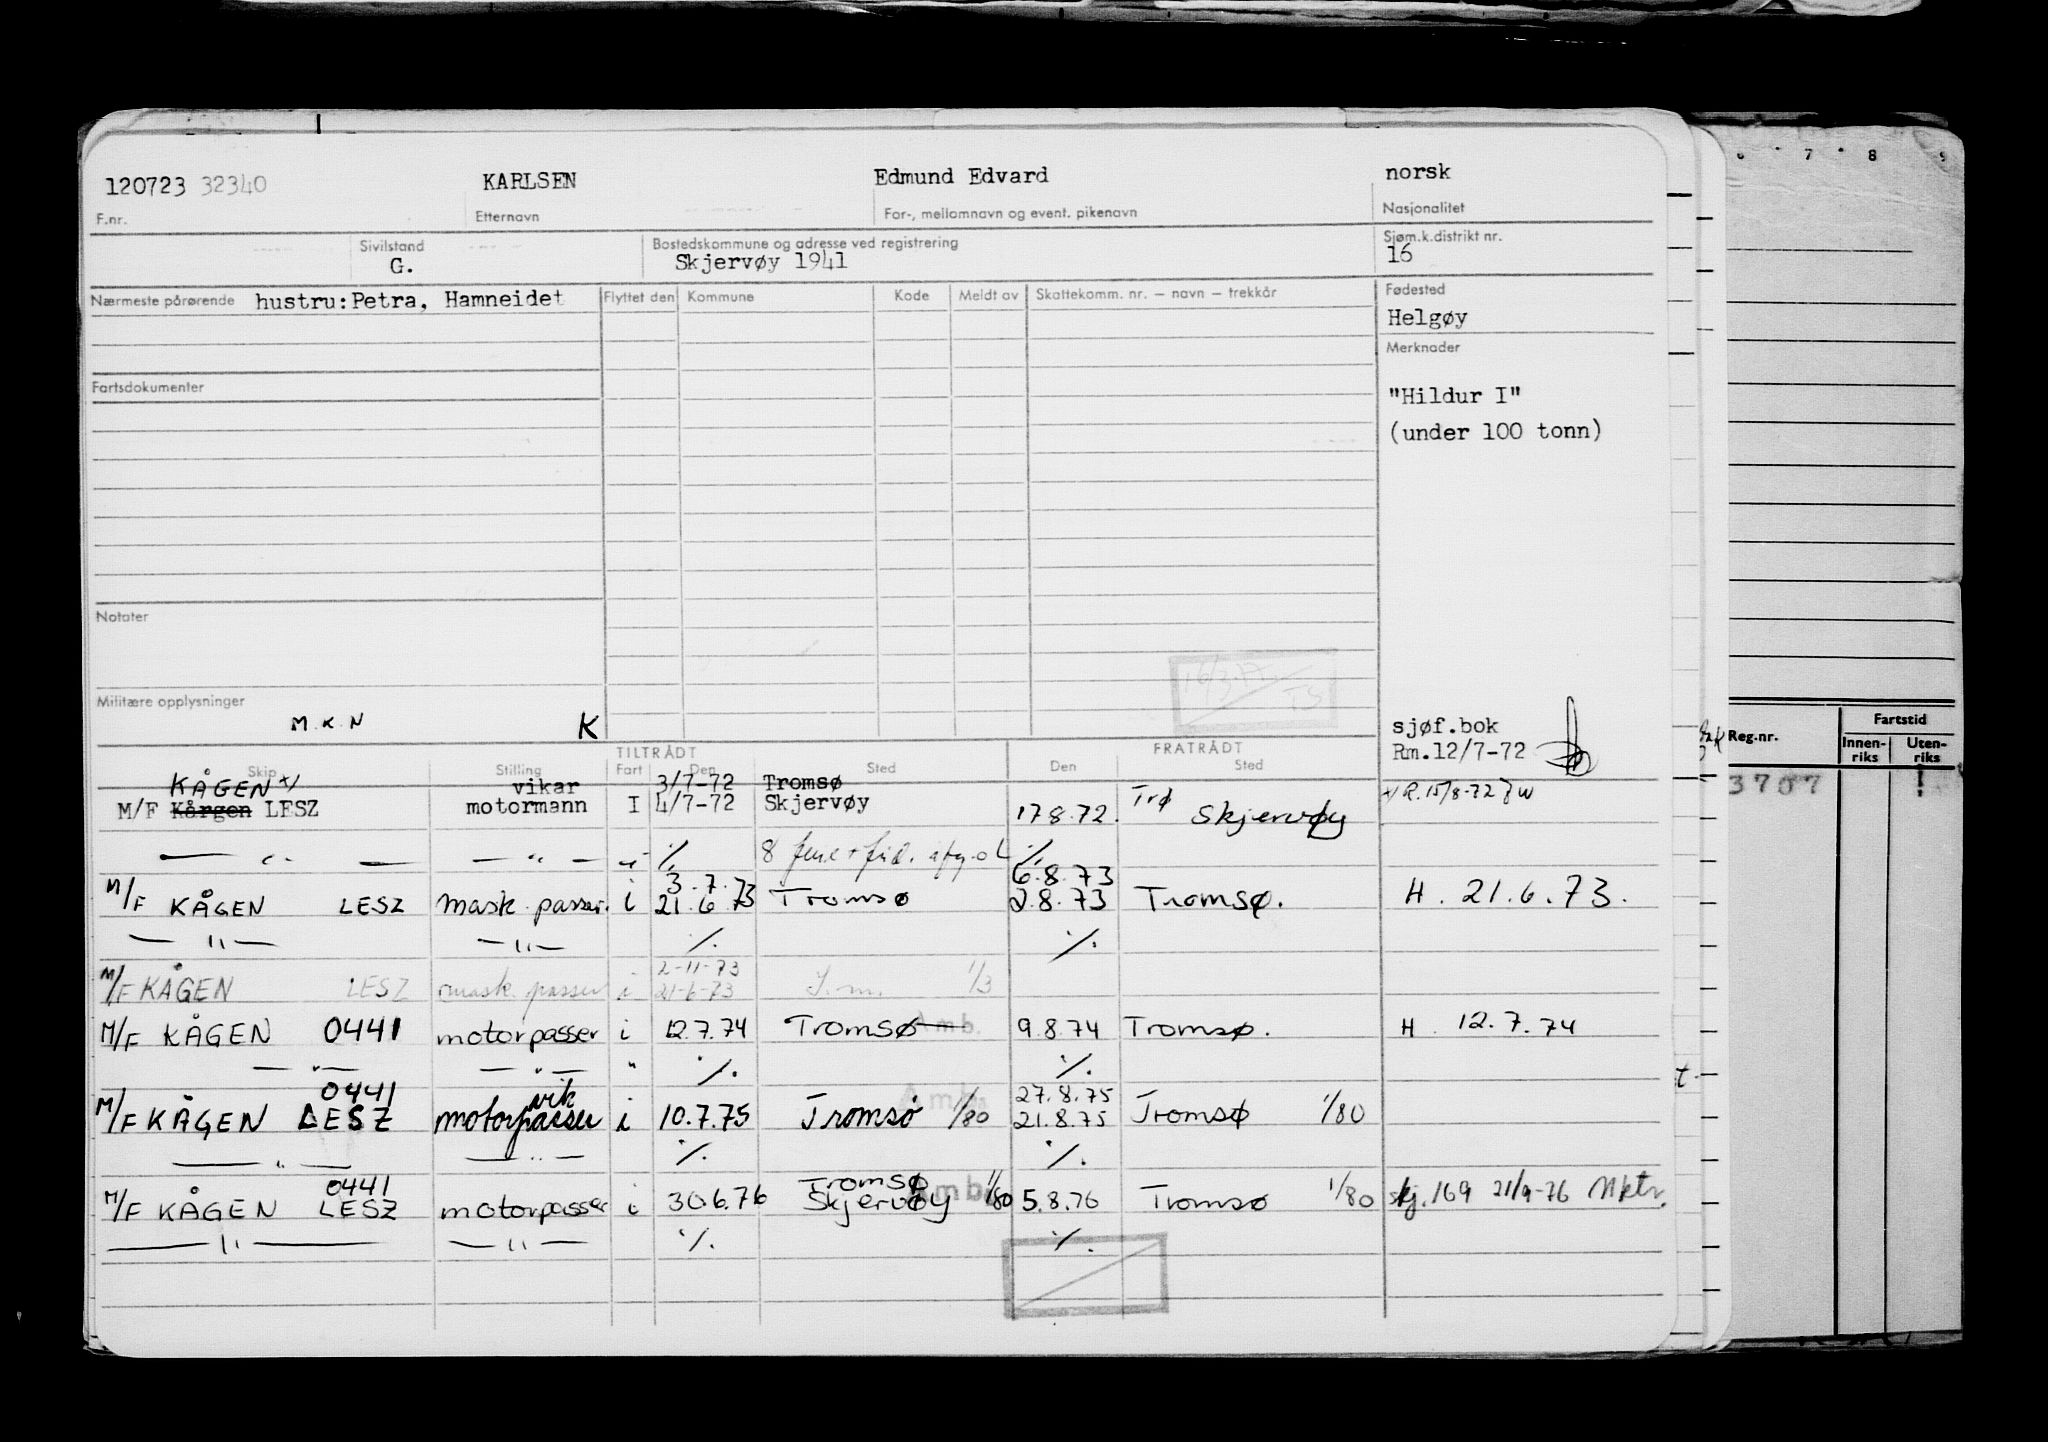 120723 32340 KARLSEN Edmund Edvard norsk
F.nr. Etternavn For-, mellomnavn og event. pikenavn Nasjonalitet
Sivilstand Bostedskommune og adresse ved registrering Sjøm.k.distrikt nr.
G. Skjervøy 1941 16
Nærmeste pårørende hustru: Petra, Hamneidet Flyttet den Kommune Kode Meldt av Skattekomm. nr. — navn — trekkår Fødested
Helgøy
Merknader
Fartsdokumenter
"Hildur I"
(under 100 tonn)
Notater
16/3.77 TS
Militære opplysninger
M.K.N K
sjøf.bok
Rm.12/7-72
TILTRÅDT FRATRÅDT
Skip Stilling Fart Den Sted Den Sted
KÅGEN x/ vikar 3/7-72 Tromsø x/ R. 15/8-72
M/F Kårgen LESZ motormann I 4/7-72 Skjervøy 17 8.72. Trø Skjervøy
— " — — " — i % 8 %
3.7.73 6.8.73
M/F KÅGEN LESZ mask. passer. i 21.6.73 Tromsø 2.8.73 Tromsø. H. 21.6.73.
— " — — " — % %
2-11-73
M/F KÅGEN LESZ mask. passer i 21-6-73 1/3
M/F KÅGEN 0441 motorpasser i 12.7.74 Tromsø Amb. 9.8.74 Tromsø. H. 12.7.74
— " — — " — " % %
0441 vik Amb. 27.8.75
M/F KÅGEN LESZ motorpasser i 10.7.75 Tromsø 1/80 21.8.75 Tromsø 1/80
— " — — " — % %
0441 Tromsø Amb.
M/F KÅGEN LESZ motorpasser i 30.6.76 Skjervøy 1/80 5.8.76 Tromsø 1/80 skj. 169 21/9-76
— " — — " — % %
7 8 9
Reg.nr. Fartstid
Innen-riks Uten-riks
3707